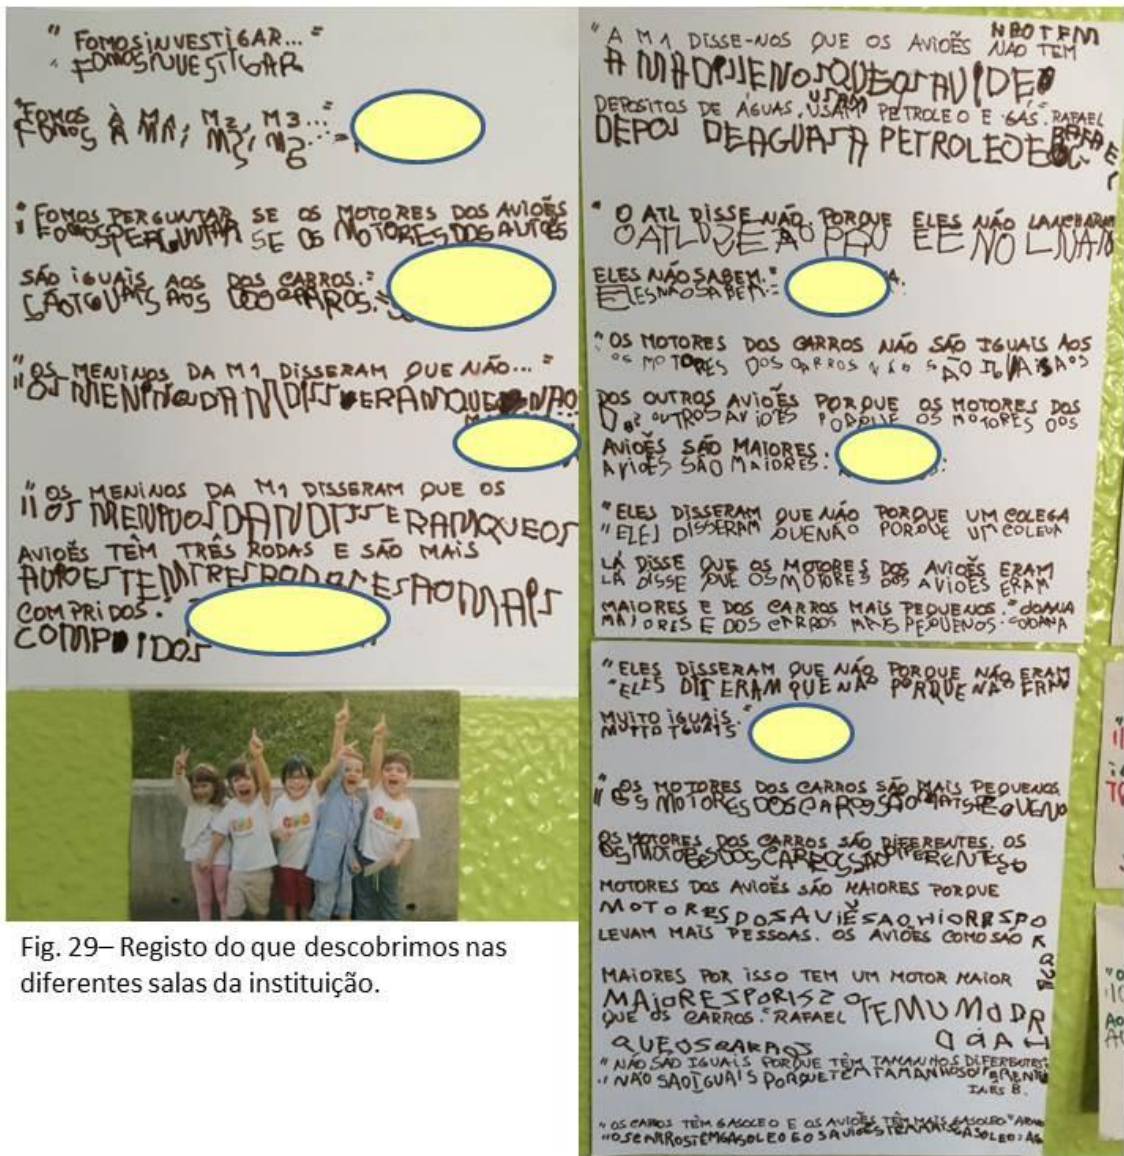 " FOMOS INVESTIGAR... "
FOMOS INVESTIGAR
"FOMOS À M1, M2, M3..."
FOMOS À M1, M2, M3
" FOMOS PERGUNTAR SE OS MOTORES DOS AVIÕES
FOMOS PERGUNTAR SE OS MOTORES DOS AVIÕES
SÃO IGUAIS AOS DOS CARROS."
SÃO IGUAIS AOS DOS CARROS.
"OS MENINOS DA M1 DISSERAM QUE NÃO..."
"OS MENINOS DA M1 DISSERAM QUE NÃO
"OS MENINOS DA M1 DISSERAM QUE OS
"OS MENINOS DA M1 DISSERAM QUE OS
AVIÕES TÊM TRÊS RODAS E SÃO MAIS
AVIOES TEM TRES RODAS E SAO MAIS
COMPRIDOS."
COMPRIDOS
Fig. 29– Registo do que descobrimos nas
diferentes salas da instituição.
"A M1 DISSE-NOS QUE OS AVIOËS NÃO TEM
NÃO TEM
A M1 DISSENOS QUE OS AVIOE
DEPOSITOS DE ÁGUAS, USAM PETROLEO E GÁS." RAFAEL
USAM
DEPOS DE AGUA PETROLEO E RAFAEL
" O ATL DISSE NÃO PORQUE ELES NÃO LANCHARAM
O ATL
ELES NÃO SABEM."
ELES NÃO SABEM.
"OS MOTORES DOS CARROS NÃO SÃO IGUAIS AOS
"OS MOTORES DOS CARROS NÃO SÃO IGUAIS AOS
DOS OUTROS AVIOËS PORQUE OS MOTORES DOS
DOS OUTROS AVIOES PORQUE OS MOTORES DOS
AVIOËS SÃO MAIORES.
AVIOES SÃO MAIORES.
"ELES DISSERAM QUE NÃO PORQUE UM COLEGA
"ELES DISSERAM QUENÃO PORQUE UM COLEGA
LÁ DISSE QUE OS MOTORES DOS AVIOËS ERAM
LÁ DISSE QUE OS MOTORES DOS AVIOES ERAM
MAIORES E DOS CARROS MAIS PEQUENOS." JOANA
MAIORES E DOS CARROS MAIS PEQUENOS. JOANA
"ELES DISSERAM QUE NÃO PORQUE NÃO ERAM
"ELES DICERAM QUE NÃO PORQUE NÃO ERAM
MUITO IGUAIS."
MUITO IGUAIS
"OS MOTORES DOS CARROS SÃO MAIS PEQUENOS.
"OS MOTORES DOS CAROS SÃO MAIS PEQUENO
OS MOTORES DOS CARROS SÃO DIFERENTES. OS
OS MOTORES DOS CARROS SÃO DIFERENTES O
MOTORES DOS AVIOËS SÃO MAIORES PORQUE
MOTORES DOS AVIËS SAO MIORES PORQUE
LEVAM MAIS PESSOAS. OS AVIOËS COMO SÃO
MAIORES POR ISSO TEM UM MOTOR MAIOR
MAIORES PORISSO TEM UM
QUE OS CARROS." RAFAEL
QUE OS CARROS
"NÃO SÃO IGUAIS PORQUE TÊM TAMANHOS DIFERENTES"
"NÃO SÃO IGUAIS PORQUE TÊM TAMANHOS DIFERENTE
INÊS B.
"OS CARROS TÊM GASOLEO E OS AVIOËS TÊM MAIS GASOLEO"
"OS CARROS TÊM GASOLEO E OS AVIOES TEM MAIS GASOLEO